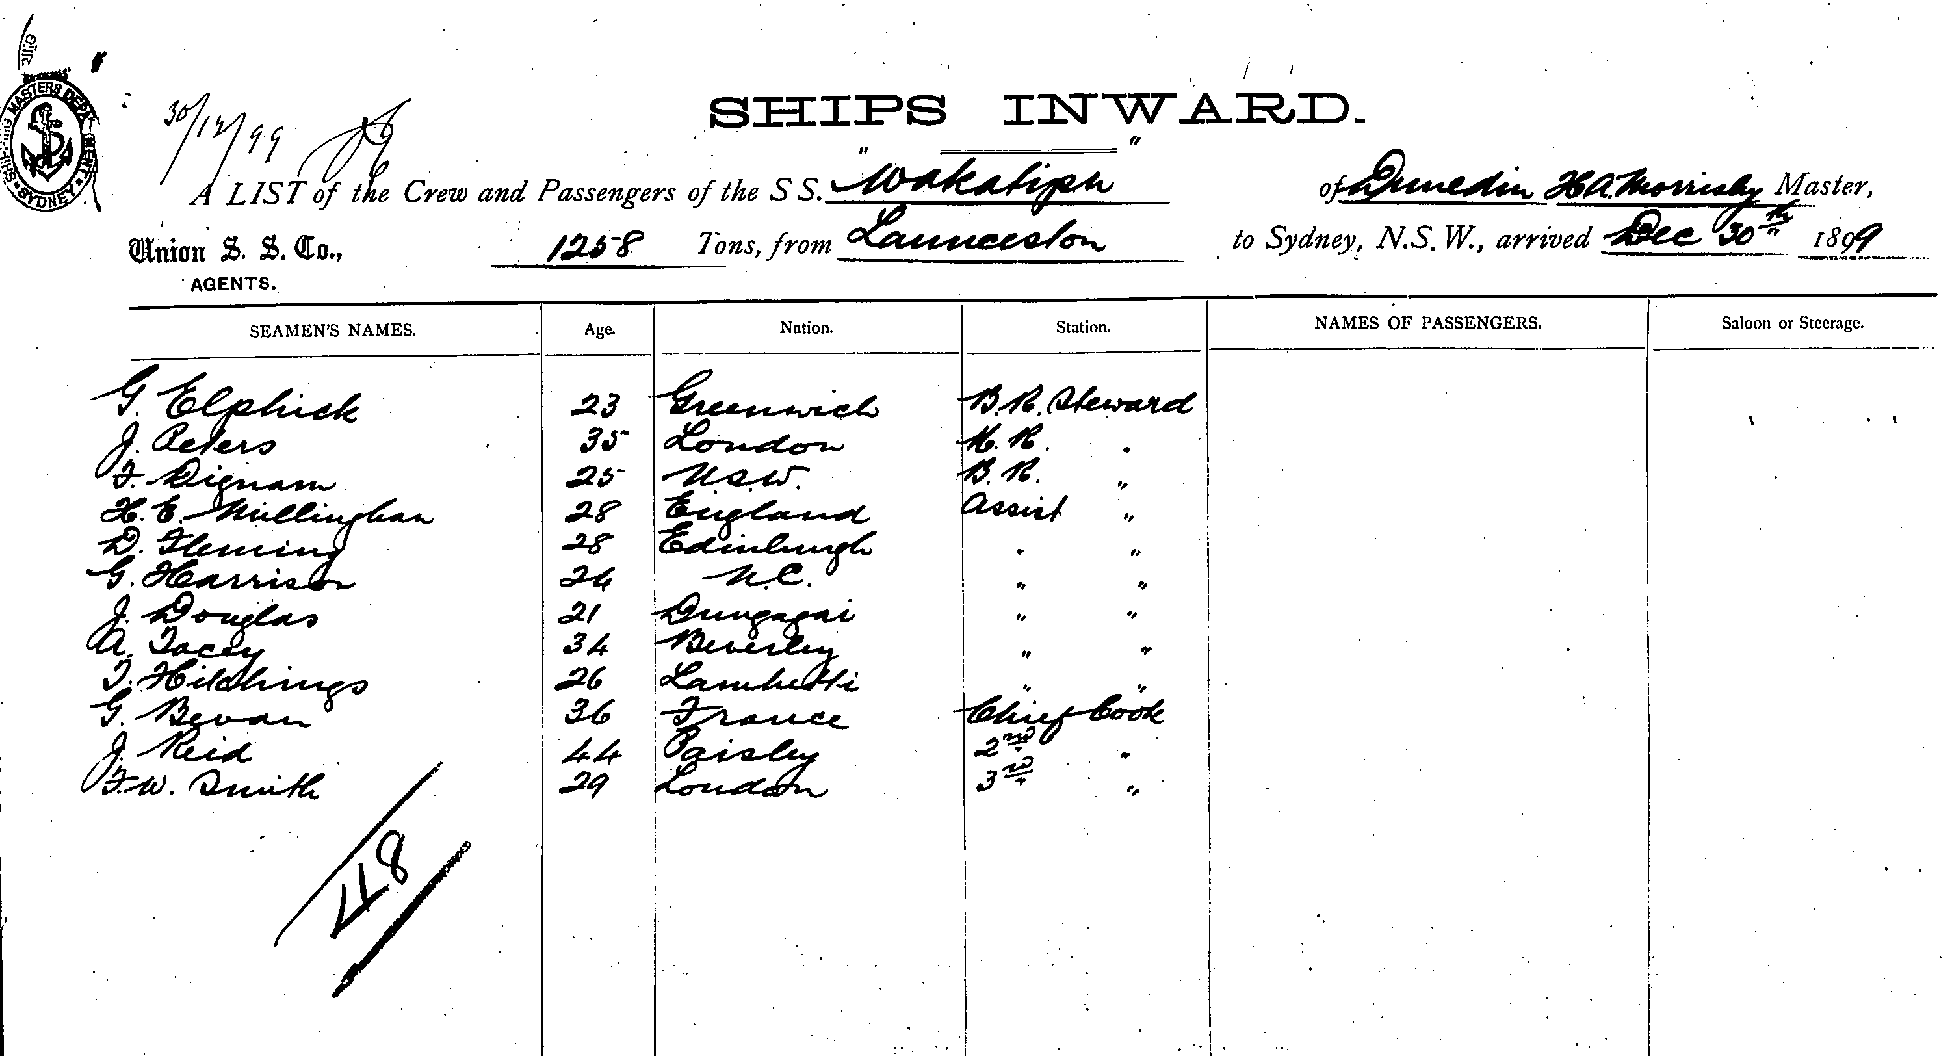 SHIPPING MASTERS DEPARTMENT SYDNEY
30/12/99
SHIPS INWARD.
A LIST of the Crew and Passengers of the S S. "Wakatipu" of Dunedin H A Morrisby Master,
Union S. S. Co., 1258 Tons, from Launceston to Sydney, N.S.W., arrived Dec 30th 1899
AGENTS.
SEAMEN'S NAMES. Age. Nation. Station. NAMES OF PASSENGERS. Saloon or Steerage.
G. Elphick 23 Greenwich B.R. Steward
J. Peters 35 London M.R. "
F. Dignam 25 N.S.W. B.R. "
H. E. Millingham 28 England Assist "
D. Fleming 28 Edinburgh " "
G. Harrison 24 N.C. " "
J. Douglas 21 " "
A. Tacey 34 Beverley " "
T. Hitchings 26 " "
G. Bevan 36 France Chief Cook
J. Reid 44 Paisley 2nd "
F. W. Smith 29 London 3rd "
48